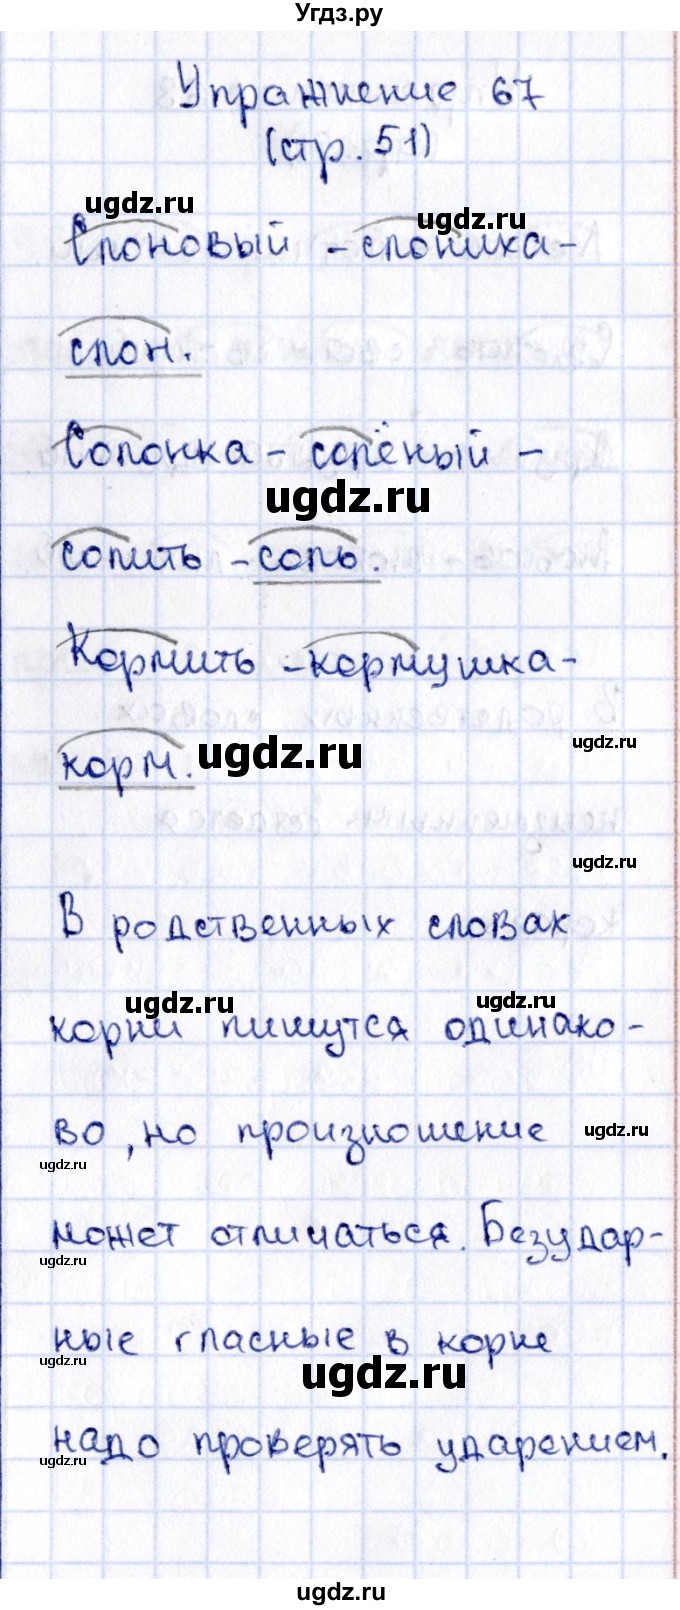 Угдз.ру
Упражнение 67
(стр. 51)
ugdz.ru
ugdz.ru
Слоновый - слониха -
слон.
Солонка - солёный -
ugdz.ru
солить - соль.
Кормить - кормушка -
ugdz.ru
корм.
ugdz.ru
ugdz.ru
В родственных словах
ugdz.ru
ugdz.ru
корни пишутся одинако-
во, но произношение
ugdz.ru
ugdz.ru
может отличаться. Безудар-
ugdz.ru
ные гласные в корне
ugdz.ru
ugdz.ru
надо проверять ударением.
ugdz.ru
ugdz.ru